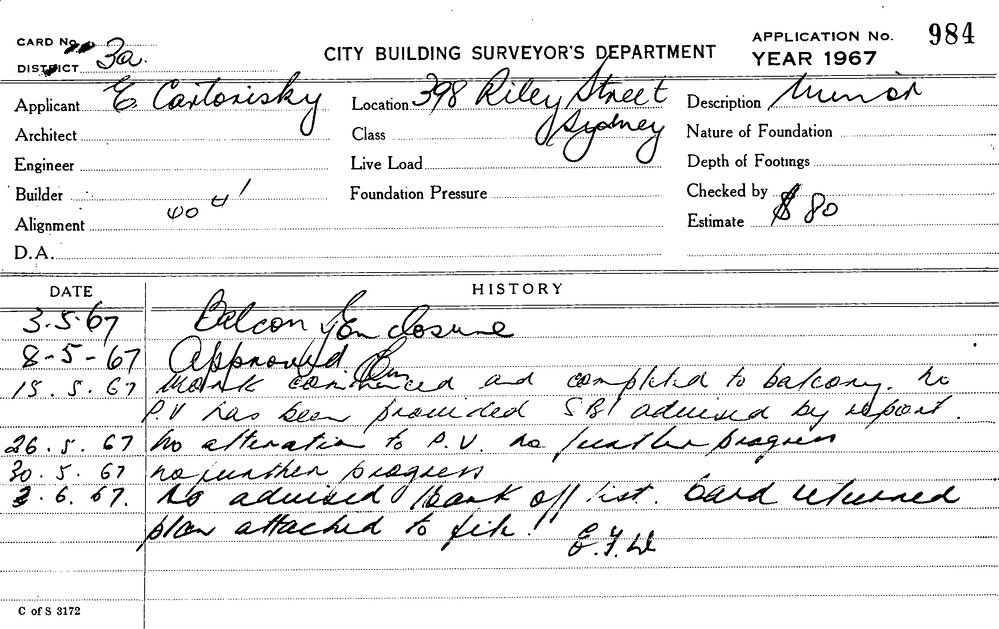 CARD No.
DISTRICT 3a.
CITY BUILDING SURVEYOR'S DEPARTMENT
APPLICATION No. 984
YEAR 1967
Applicant E Cartorisky
Location 398 Riley Street
Sydney
Description Minor
Architect
Class
Nature of Foundation
Engineer
Live Load
Depth of Footings
Builder
Foundation Pressure
Checked by
Alignment
Estimate $80
D.A.
DATE
HISTORY
3.5.67 Balcony Enclosure
8-5-67 Approved.
15.5.67 Work commenced and completed to balcony. No
P.V has been provided SBI advised by report.
26.5.67 No alteration to P.V. no further progress
30.5.67 no further progress
3.6.67. advised mark off list. Card returned
plan attached to file.
E.F.W
C of S 3172